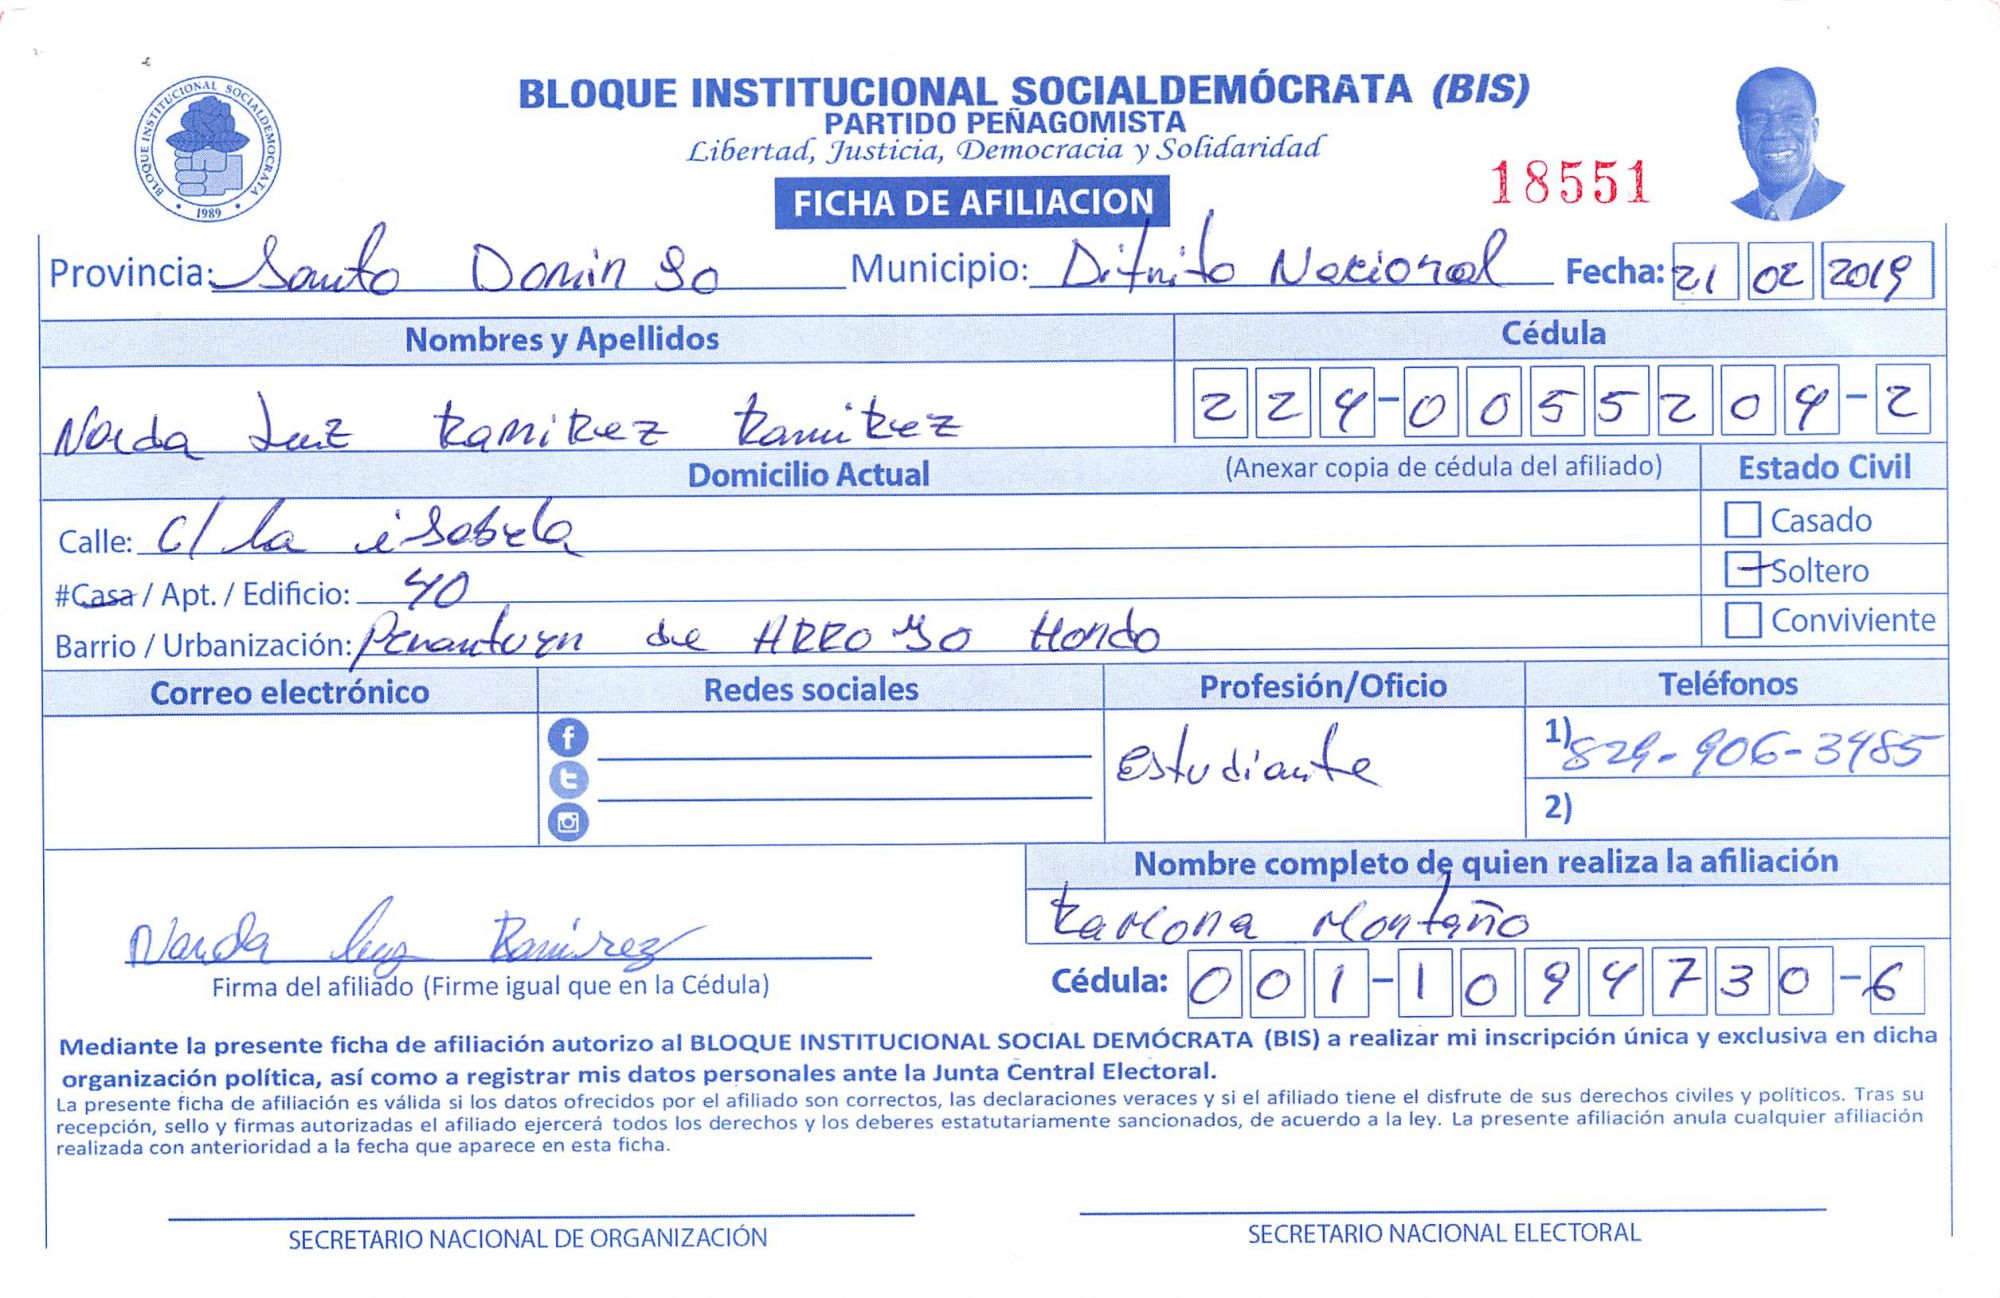 BLOQUE INSTITUCIONAL SOCIALDEMÓCRATA (BIS)
PARTIDO PEÑAGOMISTA
Libertad, Justicia, Democracia y Solidaridad
BLOQUE INSTITUCIONAL SOCIALDEMOCRATA
1989
18551
FICHA DE AFILIACION
Provincia: Santo Domingo Municipio: Distrito Nacional Fecha: 21 02 2019
Nombres y Apellidos Cédula
Narda Luz Ramirez Ramirez 224-0055204-2
Domicilio Actual (Anexar copia de cédula del afiliado) Estado Civil
Calle: C/ la isabela Casado
#Casa / Apt. / Edificio: 40 Soltero
Barrio / Urbanización: de ARROYO Hondo Conviviente
Correo electrónico Redes sociales Profesión/Oficio Teléfonos
estudiante 1) 829-906-3485
2)
Nombre completo de quien realiza la afiliación
Ramona Montaño
Narda luz Ramirez
Firma del afiliado (Firme igual que en la Cédula) Cédula: 001-1094730-6
Mediante la presente ficha de afiliación autorizo al BLOQUE INSTITUCIONAL SOCIAL DEMÓCRATA (BIS) a realizar mi inscripción única y exclusiva en dicha
organización política, así como a registrar mis datos personales ante la Junta Central Electoral.
La presente ficha de afiliación es válida si los datos ofrecidos por el afiliado son correctos, las declaraciones veraces y si el afiliado tiene el disfrute de sus derechos civiles y políticos. Tras su
recepción, sello y firmas autorizadas el afiliado ejercerá todos los derechos y los deberes estatutariamente sancionados, de acuerdo a la ley. La presente afiliación anula cualquier afiliación
realizada con anterioridad a la fecha que aparece en esta ficha.
SECRETARIO NACIONAL DE ORGANIZACIÓN SECRETARIO NACIONAL ELECTORAL